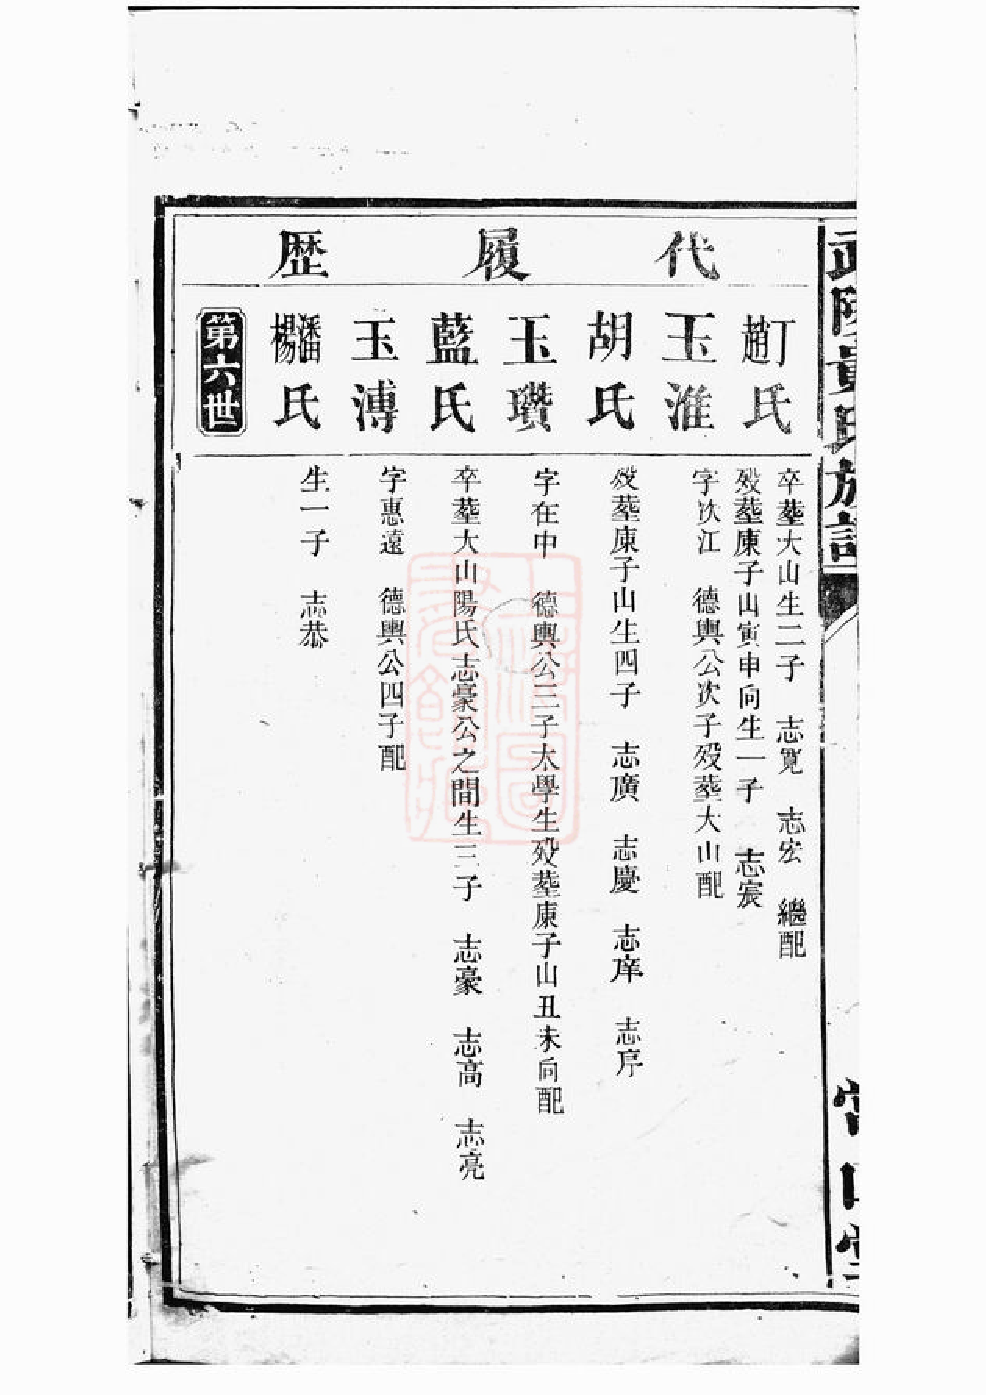 武陵黃氏族譜
代履歷
丁趙氏
卒塟大山生二子 志寬 志宏 繼配
歿塟康子山寅申向生一子 志宸
玉淮
字汝江 德輿公次子歿塟大山配
胡氏
歿塟康子山生四子 志廣 志慶 志庠 志序
玉瓚
字在中 德輿公三子太學生歿塟康子山丑未向配
藍氏
卒塟大山陽氏志豪公之間生三子 志豪 志高 志亮
玉溥
字惠遠 德輿公四子配
潘楊氏
生一子 志恭
第六世